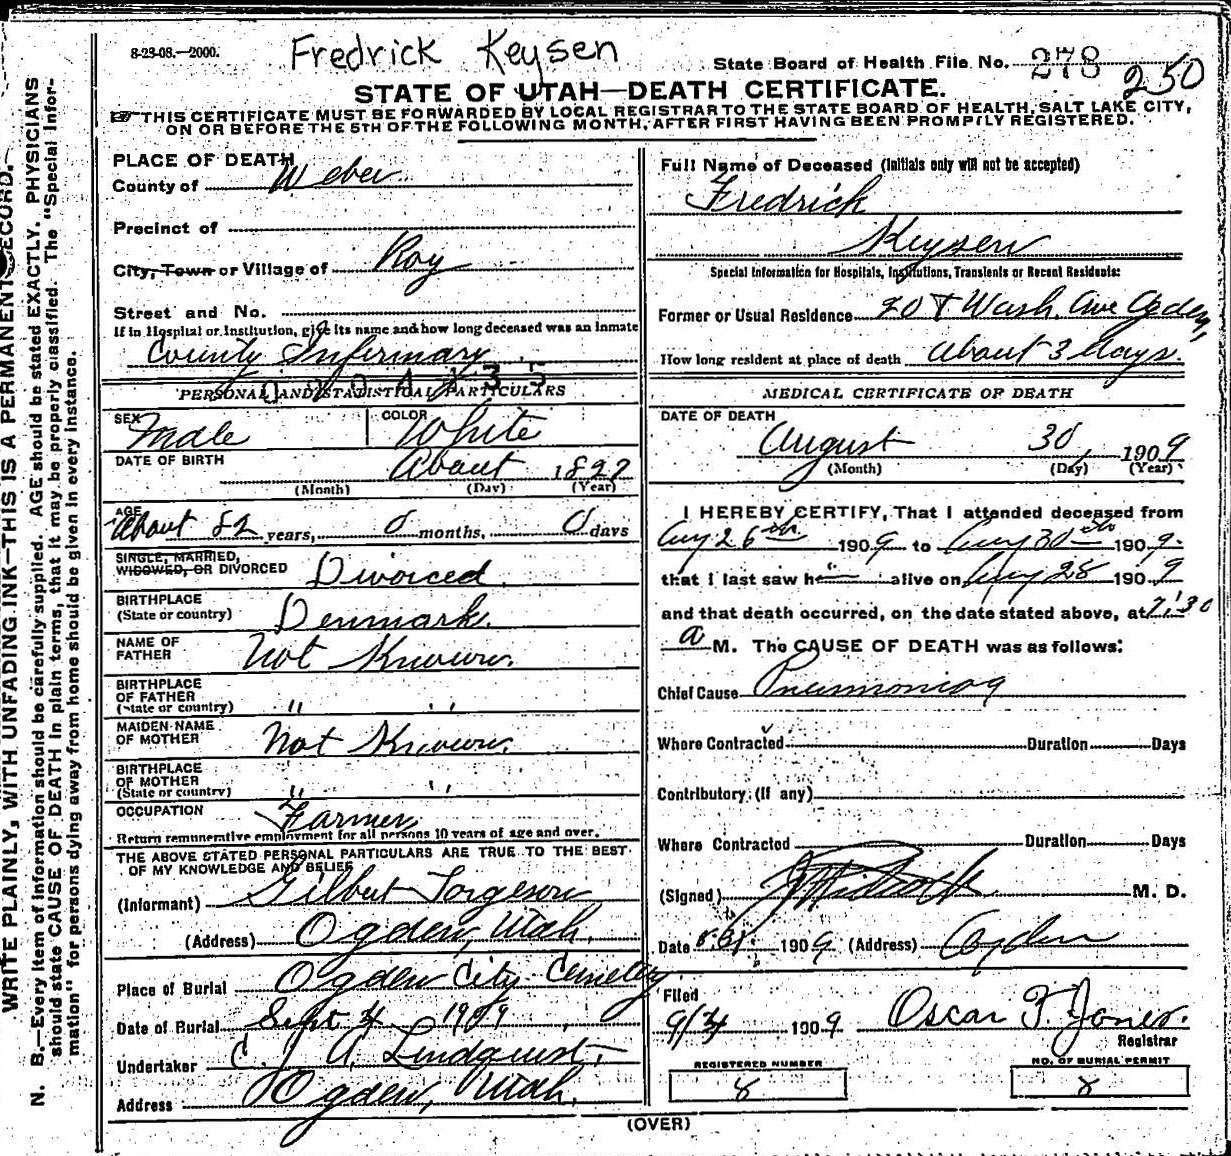 8-23-08.—2000.
Fredrick Keysen
State Board of Health File No. 278
250
STATE OF UTAH—DEATH CERTIFICATE.
THIS CERTIFICATE MUST BE FORWARDED BY LOCAL REGISTRAR TO THE STATE BOARD OF HEALTH, SALT LAKE CITY,
ON OR BEFORE THE 5TH OF THE FOLLOWING MONTH, AFTER FIRST HAVING BEEN PROMPTLY REGISTERED.
WRITE PLAINLY, WITH UNFADING INK—THIS IS A PERMANENT RECORD.
N. B.—Every item of information should be carefully supplied. AGE should be stated EXACTLY. PHYSICIANS
should state CAUSE OF DEATH in plain terms, that it may be properly classified. The "Special Infor-
mation" for persons dying away from home should be given in every instance.
PLACE OF DEATH
County of Weber
Precinct of
City, Town or Village of Roy
Street and No.
If in Hospital or Institution, give its name and how long deceased was an inmate
County Infirmary
PERSONAL AND STATISTICAL PARTICULARS
SEX Male COLOR White
DATE OF BIRTH About 1827
(Month) (Day) (Year)
AGE About 82 years, 0 months, 0 days
SINGLE, MARRIED,
WIDOWED, OR DIVORCED Divorced
BIRTHPLACE
(State or country) Denmark.
NAME OF
FATHER Not Known.
BIRTHPLACE
OF FATHER
(State or country) " "
MAIDEN NAME
OF MOTHER Not Known.
BIRTHPLACE
OF MOTHER
(State or country) " "
OCCUPATION Farmer
Return remunerative employment for all persons 10 years of age and over.
THE ABOVE STATED PERSONAL PARTICULARS ARE TRUE TO THE BEST
OF MY KNOWLEDGE AND BELIEF
(Informant) Gilbert Torgeson
(Address) Ogden, Utah.
Place of Burial Ogden City Cemetery
Date of Burial Sept 4 1909
Undertaker C. J. A. Lindquist,
Address Ogden, Utah.
Full Name of Deceased (Initials only will not be accepted)
Fredrick
Keysen
Special Information for Hospitals, Institutions, Transients or Recent Residents:
Former or Usual Residence 20 & Wash. Ave Ogden,
How long resident at place of death About 3 days.
MEDICAL CERTIFICATE OF DEATH
DATE OF DEATH
August 30, 1909
(Month) (Day) (Year)
I HEREBY CERTIFY, That I attended deceased from
Aug 26th 1909 to Aug 30th 1909.
that I last saw h alive on Aug 28 1909
and that death occurred, on the date stated above, at 7:30
a M. The CAUSE OF DEATH was as follows:
Chief Cause Pneumonia
Where Contracted Duration Days
Contributory (If any)
Where Contracted Duration Days
(Signed) M. D.
Date 1909 (Address) Ogden
Filed
9/4 1909 Oscar F. Jones.
Registrar
REGISTERED NUMBER
8
NO. OF BURIAL PERMIT
8
(OVER)